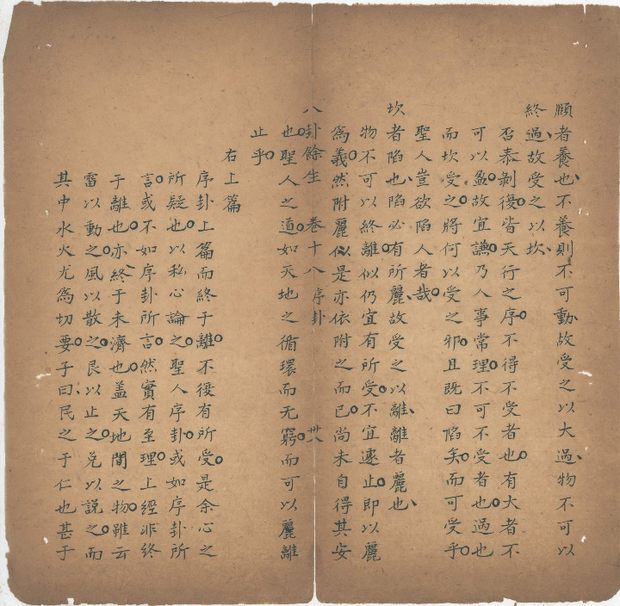 頤者養也不養則不可動故受之以大過物不可以
終過故受之以坎
否泰剝復皆天行之序不得不受者也有大者不
可以盈故宜謙乃人事常理不可不受者也過也
而坎受之將何以受之邪且既曰陷矣而可受乎
聖人豈欲陷人者哉
坎者陷也陷必有所麗故受之以離離者麗也
物不可以終離似仍宜有所受不宜遽止即以麗
為義然附麗似是亦依附之而已尚未自得其安
八卦餘生 卷十八 序卦 卅八
也聖人之道如天地之循環而无窮而可以麗離
止乎
右上篇
序卦上篇而終于離不復有所受是余心之
所疑也以私心論之聖人序卦或如序卦所
言或不如序卦所言然實有至理上經非終
于離也亦終于未濟也盖天地間之物雖云
雷以動之風以散之艮以止之兌以説之而
其中水火尤為切要子曰民之于仁也甚于